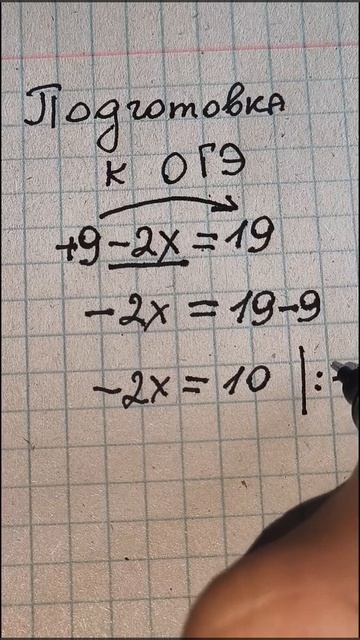 Подготовка
к ОГЭ
+9-2x=19
-2x=19-9
-2x=10 |:-